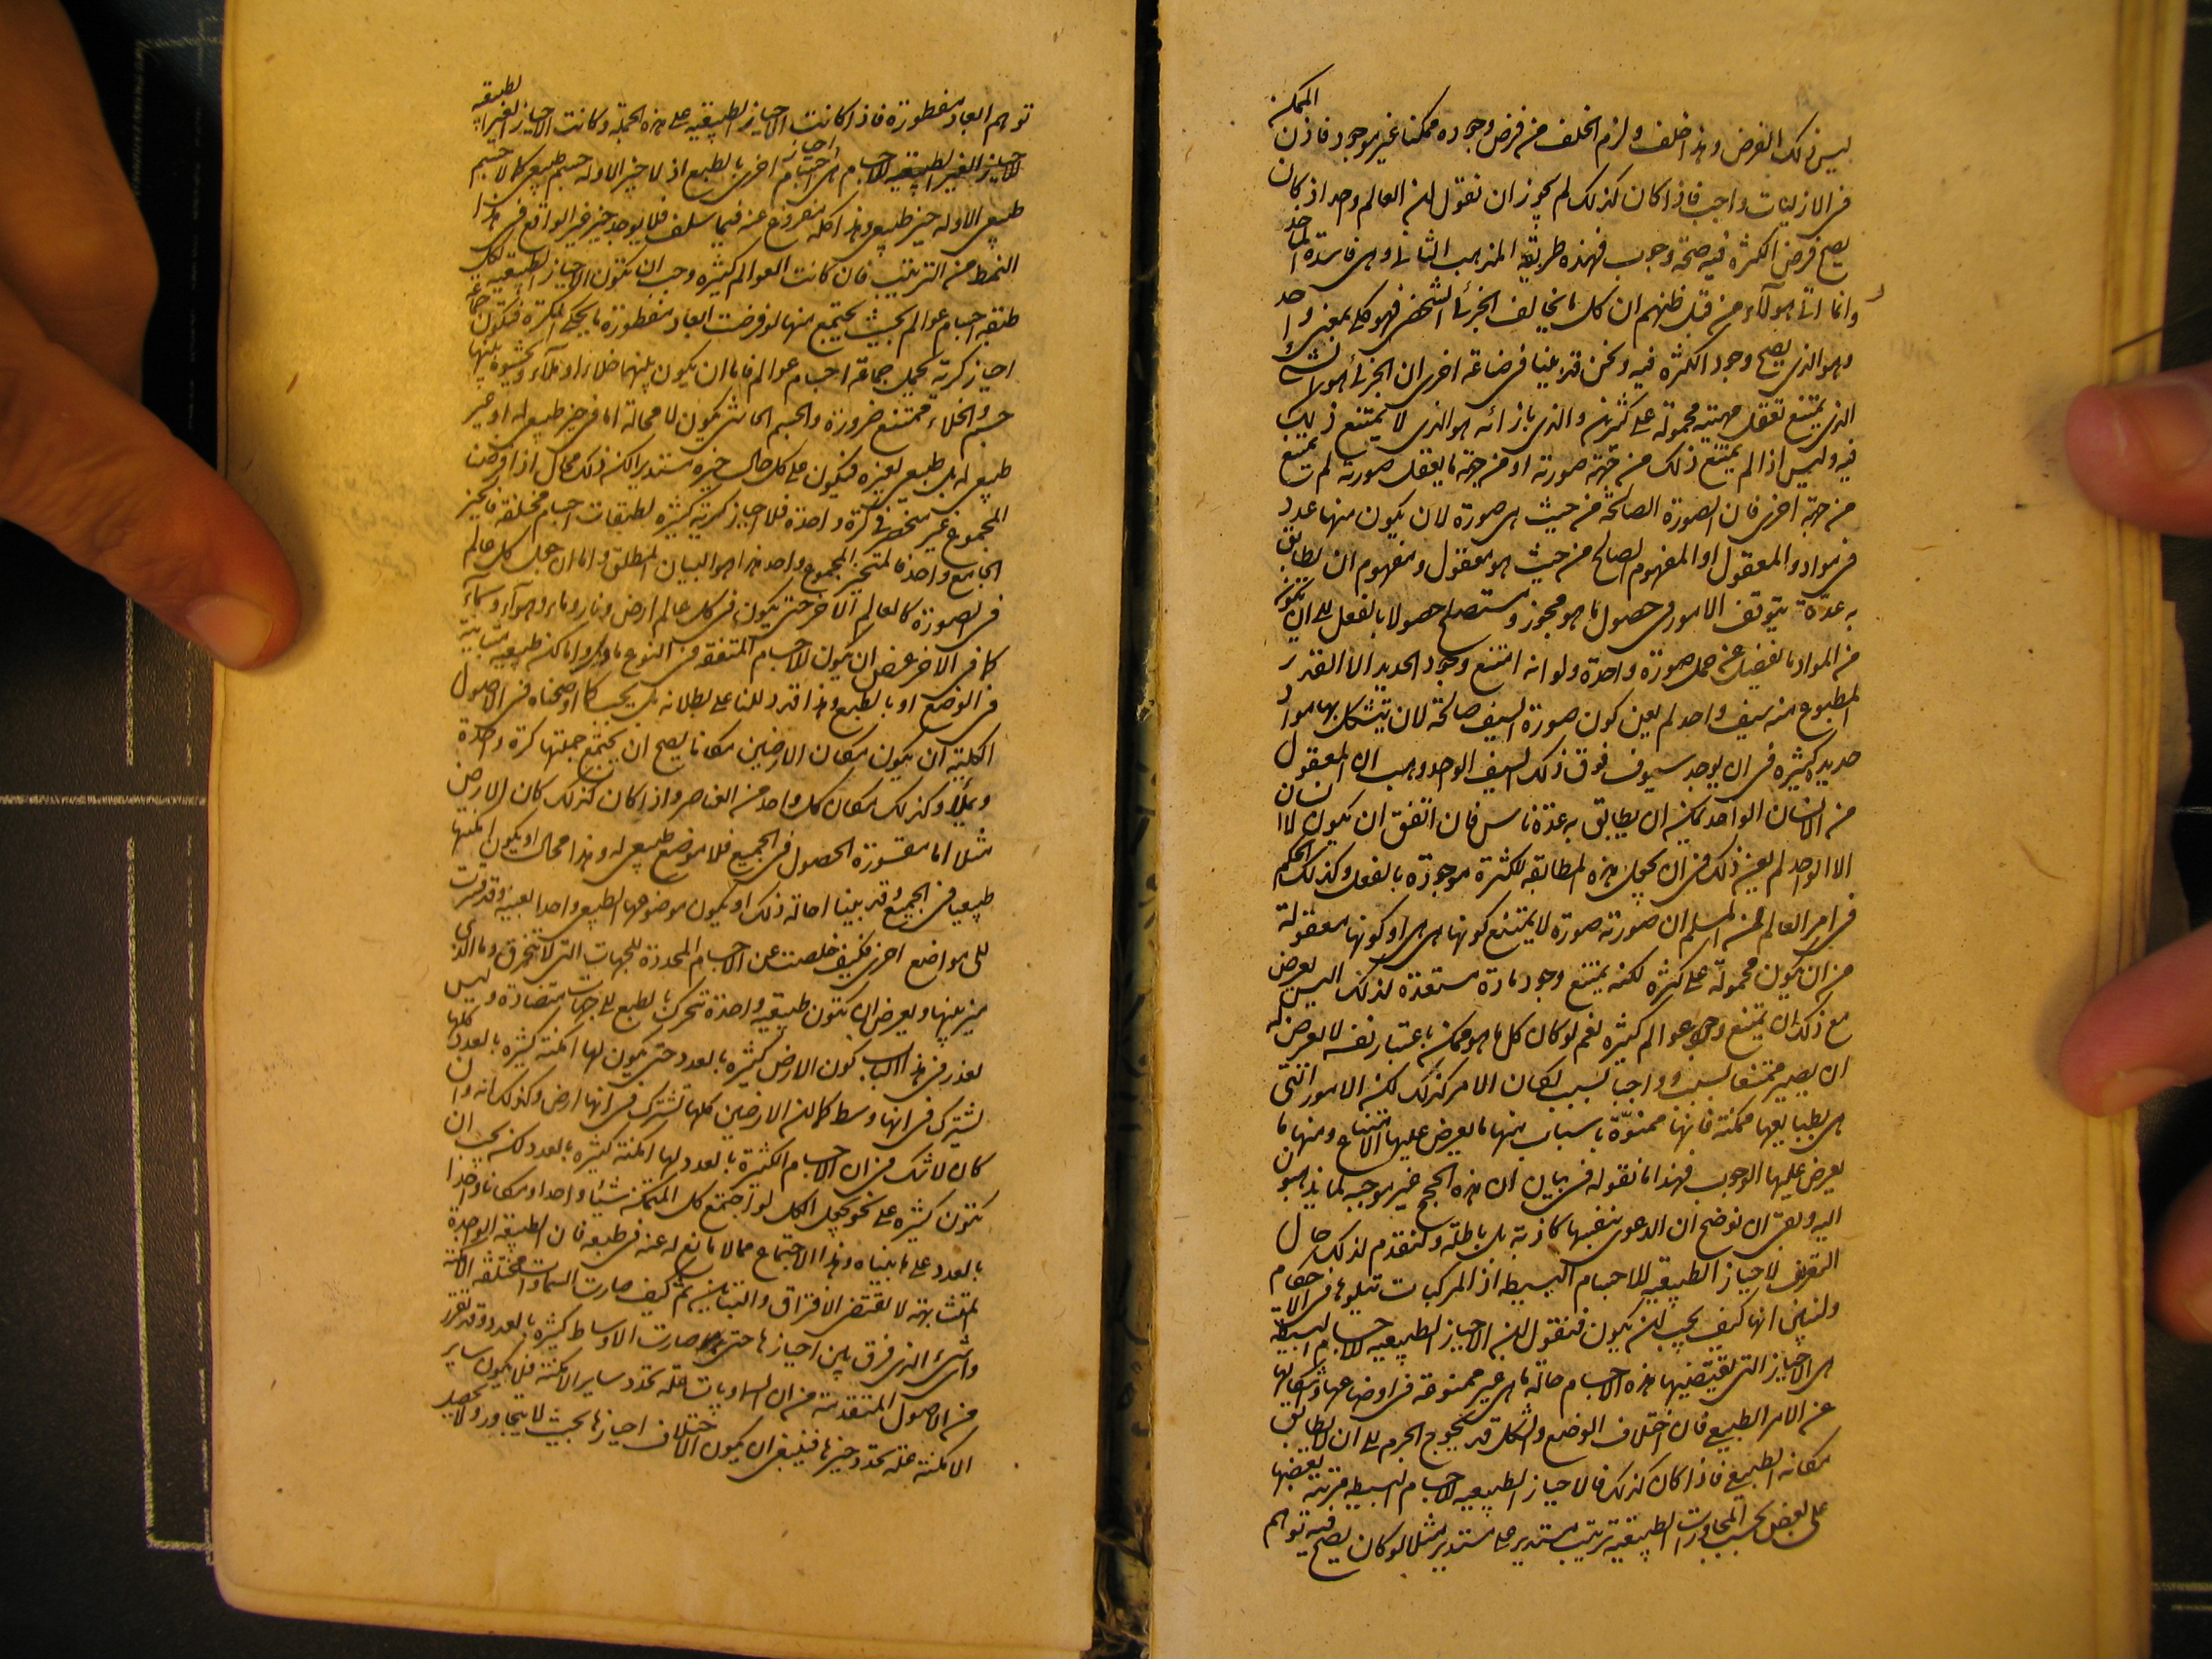 ليس ذلك الفرض وهذا خلف ولزم الخلف من فرض وجوده ممكنا غير موجود فاذن الممكن
فى الازليات واجب فاذا كان كذلك لم يجوز ان نقول ان العالم واحد اذ كان
يصح فرض الكثرة فيه صحة وجوب فهذه طريقة المذهب الثانى وهى فاسدة الماخذ
وانما اتى هولآء من قبل ظنهم ان كل ما يخالف الجزئى الشخصى فهو كلى بمعنى واحد
وهو الذى يصح وجود الكثرة فيه ونحن قد بينا فى صناعة اخرى ان الجزئى هو الشئ
الذى يمتنع تعقل مهيته محمولة على كثرين والذى بازائه هو الذى لا يمتنع ذلك
فيه وليس اذا لم يمتنع ذلك من جهة صورته او من جهة ما يعقل صورته لم يمتنع
من جهة اخرى فان الصورة الصالحة من حيث هى صورة لان يكون منها عدد
فى مواد والمعقول او المفهوم الصالح من حيث هو معقول ومفهوم ان يطابق
به عدة يتوقف الامور فى حصول ما هو مجوز ومستصلح حصولا بالفعل الى ان تكون
من المواد ما يفضل عن حمل صورة واحدة ولو انه امتنع وجود الحديد الا القدر
المطبوع منه سيف واحد لم يعن كون صورة السيف صالحة لان يتشكل بها مواد
حديدية كثيرة فى ان يوجد سيوف فوق ذلك السيف الواحد وهب ان المعقول
من الانسان الواحد يمكن ان يطابق به عدة ناس فان اتفق ان يكون لا انسان
الا الواحد لم يغن ذلك فى ان يجعل هذه المطابقة للكثرة موجودة بالفعل وكذلك الحكم
فى امر العالم فمن المسلم ان صورته صورة لا يمتنع كونها هى هى او كونها معقولة
من ان يكون محمولة على كثرة لكنه يمتنع وجود مادة مستعدة لذلك اليس يعرض
مع ذلك ان يمتنع وجود عوالم كثيرة نعم لو كان كل ما هو ممكن باعتبار نفسه لا يعرض له
ان يصير ممتنعا بسبب وواجبا بسبب لكان الامر كذلك لكن الامور التى
هى بطبايعها ممكنة فانها ممنوة باسباب منها ما يعرض عليها الامتناع ومنها ما
يعرض عليها الوجوب فهذا ما نقوله فى بيان ان هذه الحجج غير موجبة لما يذهبون
اليه وبقى ان نوضح ان الدعوى نفسها كاذبة بل باطلة ولنقدم لذلك حال
التعرف لاحياز الطبيعية للاجسام البسيطة اذ المركبات تتلوها فى الاحكام
ولنبين انها كيف يجب ان يكون فنقول ان الاحياز الطبيعية للاجسام البسيطة
هى الاحياز التى يقتضيها هذه الاجسام حالة ما هى غير ممنوعة فى اوضاعها واشكالها
عن الامر الطبيعى فان اختلاف الوضع والشكل قد يحوج الجرم الى ان لا يطابق
مكانه الطبيعى فاذا كان كذلك فالاحياز الطبيعية للاجسام البسيطة مترتبة بعضها
على بعض بحسب المجاورات الطبيعية ترتيب مستدير على مستدير مثلا لو كان يصح فيه توهم
توهم ابعاد مفطورة فاذا كانت الاحياز الطبيعية على هذه الجملة وكانت الاحياز الغير الطبيعية
الاحياز الغير الطبيعية للاجسام هى احياز اجسام اخرى بالطبع اذ لا حيز الا وله جسم طبيعى كما لا جسم
طبيعى الا وله حيز طبيعى وهذا كله مفروغ عنه فيما سلف فلا يوجد حيز غير الواقع فى هذا
النمط من الترتيب فان كانت العوالم كثيرة وجب ان تكون الاحياز الطبيعية لكل
طبقة اجسام عوالم بحيث يجتمع منها لو فرضت ابعاد مفطورة ما يحكى الكرة فتكون جماعة
احياز كرية لحمل جماعة اجسام عوالم فاما ان يكون بينهما خلاء او ملآء ويحشوه بينها
جسم والخلاء ممتنع ضرورة والجسم الحاشى يكون لا محالة اما فى حيز طبيعى له او غير
طبيعى له بل طبيعى لغيره فيكون على كل حال حيزه مستديرا لكن ذلك محال اذا فرض
المجموع غير منحصر فى كرة واحدة فلا احياز كرية كثيرة لطبقات اجسام مختلفة فالحيز
الجامع واحد فالمتحيز المجموع واحد هذا هو البيان المطلق واما ان جعل كل عالم
فى الصورة كالعالم الآخر حتى يكون فى كل عالم ارض ونار وماء وهوآء وسماء
كما فى الاخر عرض ان يكون للاجسام المتفقة فى النوع اماكن طبيعية متباينة
فى الوضع او بالطبع وهذا قد دللنا على بطلانه بل يجب كما اوضحناه فى الاصول
الكلية ان يكون مكان الارضين مكانا يصح ان يجتمع جملتها كرة واحدة
ويملأه وكذلك مكان كل واحد من العناصر واذا كان كذلك كان الارض
مثلا اما مقسورة الحصول فى الجميع فلا موضع طبيعى له وهذا محال او يكون امكنتها
طبيعيا فى الجميع وقد بينا احالة ذلك او يكون موضعها الطبيعى واحدا بعينه وقد قسرت
الى مواضع اخرى فكيف خلصت عن الاجسام المحددة للجهات التى لا تنخرق وما الذى
ميز بينها ويعرض ان تكون طبيعة واحدة تتحرك بالطبع الى جهات متضادة وليس
يعذر فى هذا الباب كون الارض كثيرة بالعدد حتى يكون لها امكنة كثيرة بالعدد كلها
يشترك فى انها وسط كما ان الارضين كلها تشترك فى انها ارض وكذلك انه وان
كان لا شك فى ان الاجسام الكثيرة بالعدد لها امكنة كثيرة بالعدد لكن يجب ان
تكون كثيرة على نحو يجعل الكل لو اجتمع كل المتمكن شيئا واحدا ومكانا واحدا
بالعدد على ما بيناه وهذا الاجتماع مما لا مانع له عنه فى طبعه فان الطبيعة الواحدة
المتشابهة لا تقتضى الافتراق والتباين ثم كيف صارت السماوات مختلفة الامكنة
واى شئ الذى فرق بين احيازها حتى صارت الاوساط كثيرة بالعدد وقد تقرر
من الاصول المتقدمة من ان السماويات علة تحدد ساير الامكنة فلا يكون ساير
الامكنة علة تحدد حيزها فينبغى ان يكون الاختلاف احيازها بحيث لا يتجاور ولا يحصل